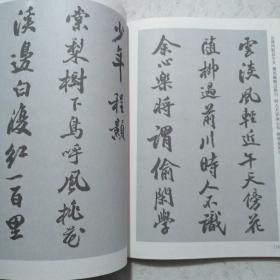 雲淡風輕近午天傍花
隨柳過前川時人不識
余心樂將謂偷閑學
少年 程顥
棠梨樹下鳥呼風桃花
溪邊白復紅一百里